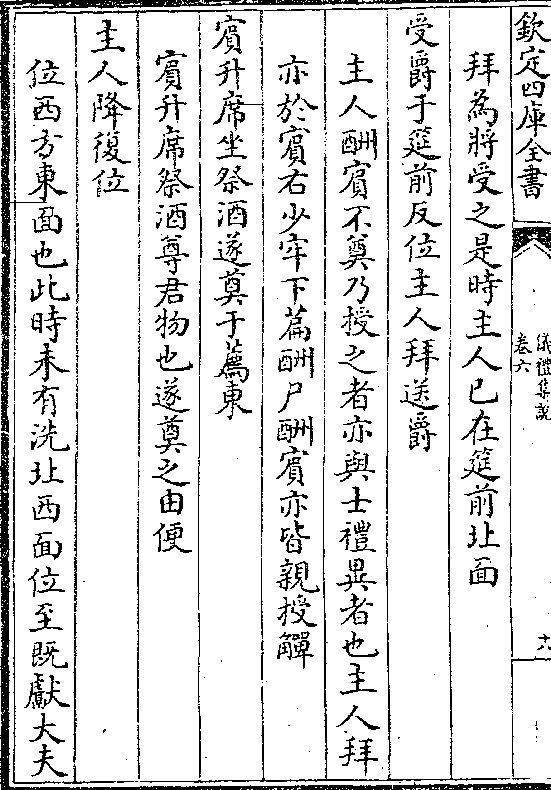 欽定四庫全書
儀禮集說
卷六
十
拜為將受之是時主人已在筵前北面
受爵于筵前反位主人拜送爵
主人酬賓不奠乃授之者亦與士禮異者也主人拜
亦於賓右少牢下篇酬尸酬賓亦皆親授觶
賓升席坐祭酒遂奠于薦東
賓升席祭酒尊君物也遂奠之由便
主人降復位
位西方東面也此時未有洗北西面位至既獻大夫